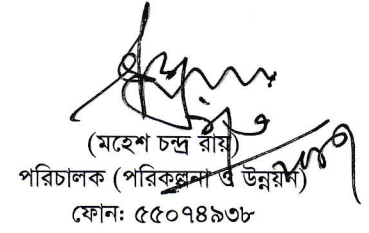 (মহেশ চন্দ্র রায়)
পরিচালক (পরিকল্পনা ও উন্নয়ন)
ফোন: ৫৫০৭৪৯৩৮